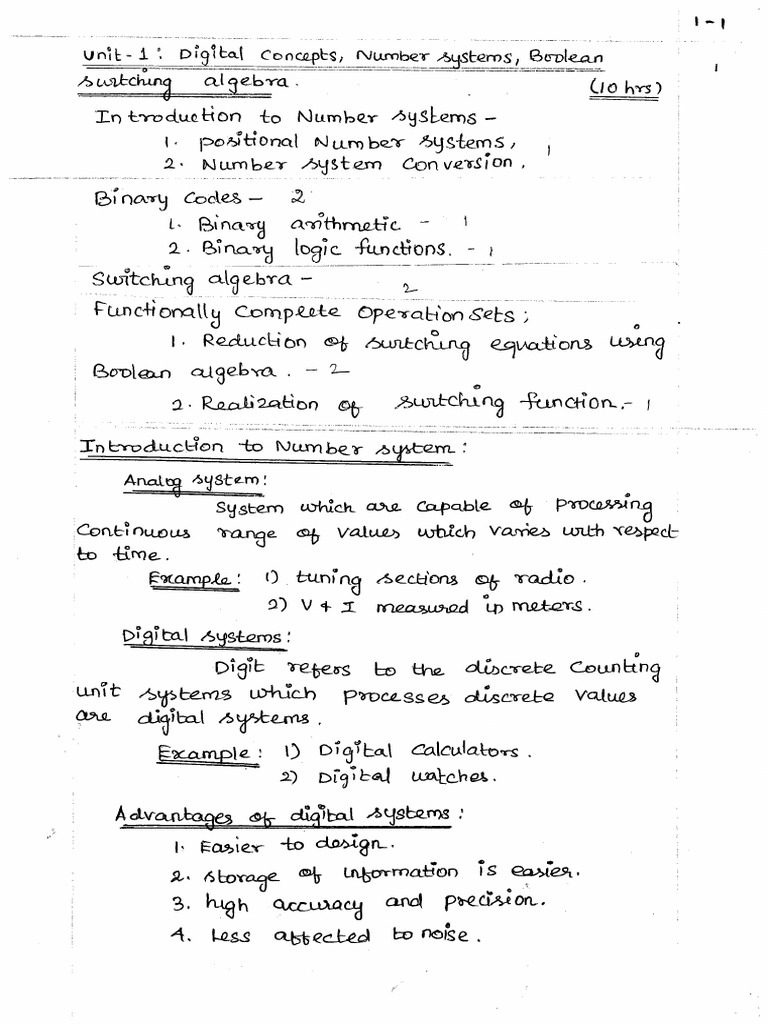 1-1
Unit-1: Digital Concepts, Number systems, Boolean
1
switching algebra. (10 hrs)
Introduction to Number systems -
1. positional Number systems, 1
2. Number system conversion.
Binary codes - 2
1. Binary arithmetic - 1
2. Binary logic functions. - 1
Switching algebra - 2
Functionally Complete Operation Sets;
1. Reduction of switching equations using
Boolean algebra. - 2
2. Realization of switching function. - 1
Introduction to Number system:
Analog system:
System which are capable of processing
Continuous range of values which varies with respect
to time.
Example: 1) tuning sections of radio.
2) V & I measured in meters.
Digital systems:
Digit refers to the discrete counting
unit systems which processes discrete values
are digital systems.
Example: 1) Digital calculators.
2) Digital watches.
Advantages of digital systems:
1. Easier to design.
2. storage of information is easier.
3. high accuracy and precision.
4. Less affected to noise.